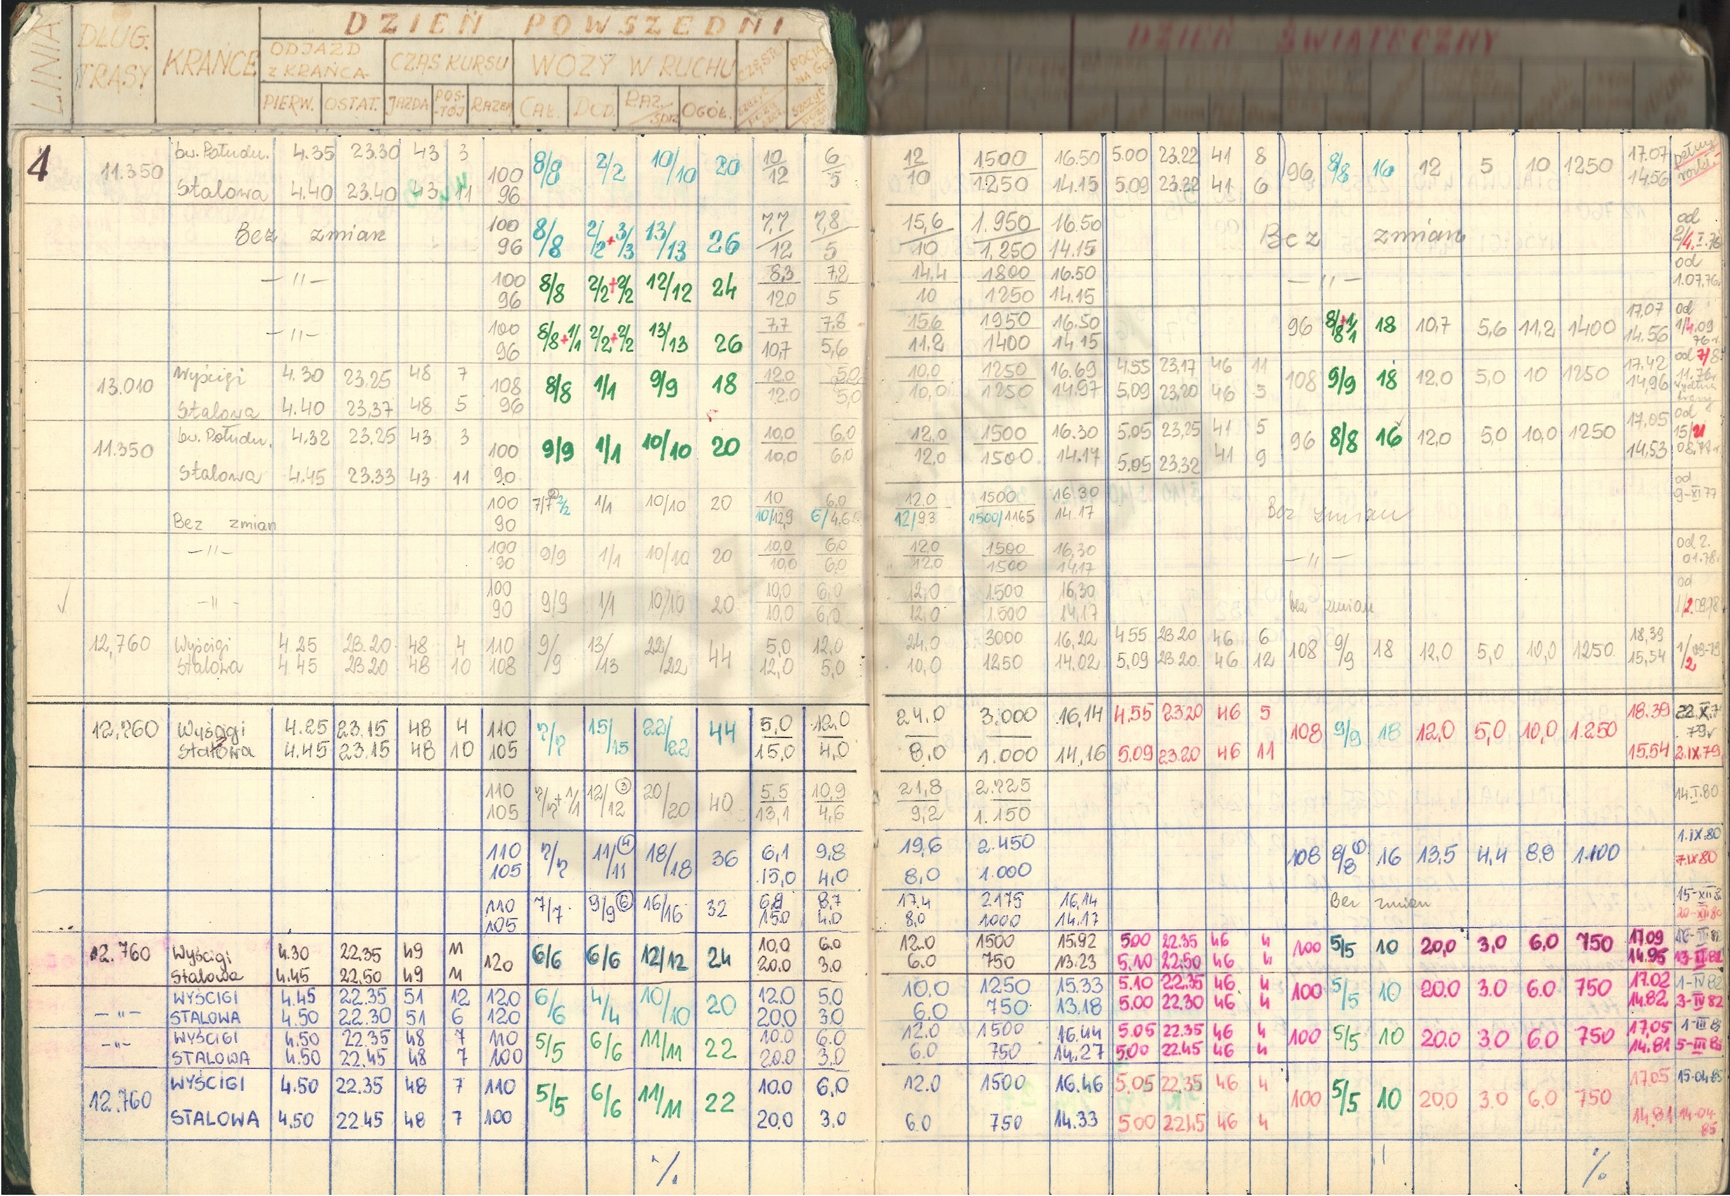 DZIEŃ POWSZEDNI
DZIEŃ ŚWIĄTECZNY
LINIA DŁUG. TRASY KRAŃCE ODJAZD Z KRAŃCA CZAS KURSU WOZY W RUCHU
PIERW. OSTAT. JAZDA POS-TÓJ RAZEM CAŁ. DOD. OGÓŁ.
4
11.350 bw. Połudn. 4.35 23.30 43 3 100 8/8 2/2 10/10 20 10 6 12 1500 16.50 5.00 23.22 41 8 96 8/8 16 12 5 10 1250 17.07
Stalowa 4.40 23.40 43 11 96 12 5 10 1250 14.15 5.09 23.22 41 6 14.56
Bez zmian 100 8/8 2/2+3/3 13/13 26 7,7 7,8 15,6 1.950 16.50 Bez zmian od
96 12 5 10 1,250 14.15
—"— 100 8/8 2/2+2/2 12/12 24 8,3 7,2 14.4 1800 16.50 —"— od
96 12.0 5 10 1250 14.15 1.07.76
—"— 100 8/8+1/1 2/2+2/2 13/13 26 7,7 7,8 15.6 1950 16.50 96 8/8+1/1 18 10,7 5,6 11,2 1400 17.07 od
96 10,7 5,6 11,2 1400 14.15 14.56
13.010 Wyścigi 4.30 23.25 48 7 108 8/8 1/1 9/9 18 12.0 5.0 10,0 1250 16.69 4.55 23.17 46 11 108 9/9 18 12,0 5,0 10 1250 17.42
Stalowa 4.40 23.37 48 5 96 12.0 5,0 10,0 1250 14.97 5.09 23.20 46 5 14.96
11.350 bw. Połudn. 4.32 23.25 43 3 100 9/9 1/1 10/10 20 10,0 6.0 12,0 1500 16.30 5.05 23.25 41 5 96 8/8 16 12,0 5,0 10,0 1250 17.05 od
Stalowa 4.45 23.33 43 11 90 10,0 6,0 12,0 1500 14.17 5.05 23.32 41 9 14.53
Bez zmian 100 7/7 2/2 1/1 10/10 20 10 6.0 12.0 1500 16.30 Bez zmian od
90 10/12,9 6/4.65 12/9.3 1500/1165 14.17 9-XI 77
—"— 100 9/9 1/1 10/10 20 10,0 6.0 12.0 1500 16,30 —"— od 2.
90 10,0 6,0 12.0 1500 14.17 01.78
—"— 100 9/9 1/1 10/10 20 10,0 6,0 12,0 1500 16,30 bez zmian od
90 10,0 6,0 12,0 1.500 14.17
12,760 Wyścigi 4 25 23.20 48 4 110 9/9 13/13 22/22 44 5,0 12,0 24,0 3000 16,22 4.55 23 20 46 6 108 9/9 18 12,0 5,0 10,0 1250 18,39
Stalowa 4 45 23 20 48 10 108 12,0 5,0 10,0 1250 14.02 5,09 23.20 46 12 15,54
12.760 Wyścigi 4.25 23.15 48 4 110 7/7 15/15 22/22 44 5,0 12.0 24.0 3.000 16,14 4.55 23.20 46 5 108 9/9 18 12,0 5,0 10,0 1.250 18.39
Stalowa 4.45 23.15 48 10 105 15,0 4,0 8,0 1.000 14,16 5.09 23.20 46 11 15,54 2.IX 79
110 7/7+1/1 12/12 ③ 20/20 40 5,5 10,9 21,8 2.725 14.I.80
105 13,1 4,6 9,2 1.150
110 7/7 11/11 ④ 18/18 36 6,1 9,8 19,6 2.450 108 8/8 ① 16 13,5 4,4 8.8 1.100 1.IX 80
105 15,0 4,0 8,0 1.000 7.IX 80
110 7/7 9/9 ⑥ 16/16 32 8,7 17,4 2175 16,14 Bez zmian
105 15.0 4.0 8,0 1000 14.17
12.760 Wyścigi 4.30 22.35 49 11 120 6/6 6/6 12/12 24 10,0 6.0 12.0 1500 15.92 5.00 22.35 46 4 100 5/5 10 20,0 3,0 6,0 750 17.09
Stalowa 4.45 22,50 49 11 20.0 3.0 6.0 750 13.23 5.10 22.50 46 4 14.95
—"— WYŚCIGI 4.45 22.35 51 12 120 6/6 4/4 10/10 20 12.0 5.0 10,0 1250 15.33 5.10 22.35 46 4 100 5/5 10 20.0 3.0 6.0 750 17.02 1-IV 82
STALOWA 4.50 22.30 51 6 120 20.0 3.0 6.0 750 13.18 5.00 22.30 46 4 14.82 3-IV 82
—"— WYŚCIGI 4.50 22.35 48 7 110 5/5 6/6 11/11 22 10.0 6.0 12.0 1500 16.44 5.05 22.35 46 4 100 5/5 10 20.0 3.0 6.0 750 17,05
STALOWA 4.50 22.45 48 7 100 20.0 3.0 6.0 750 14.27 5.00 22.45 46 4 14.81
12.760 WYŚCIGI 4.50 22.35 48 7 110 5/5 6/6 11/11 22 10.0 6,0 12.0 1500 16.46 5,05 22,35 46 4 100 5/5 10 20,0 3.0 6,0 750 17.05 15-04-85
STALOWA 4.50 22.45 48 7 100 20,0 3,0 6.0 750 14.33 5.00 22.45 46 4 14.81 14-04-85